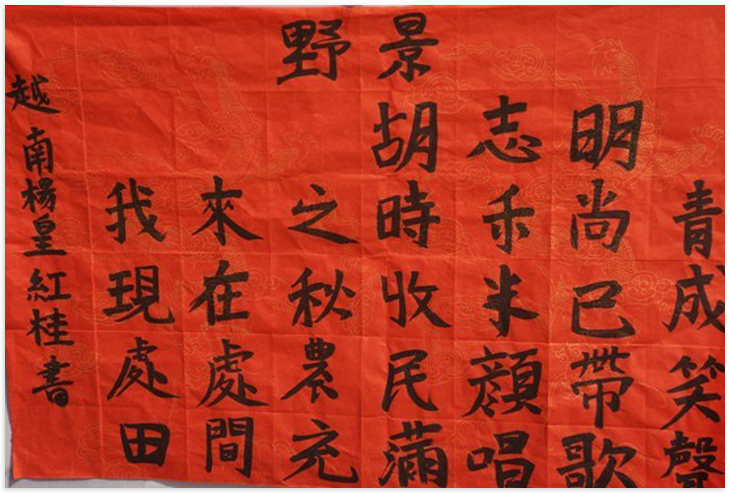 野景
胡志明
我來之時禾尚青
現在秋收米已成
處處農民顔帶笑
田間充滿唱歌聲
越南楊皇紅桂書